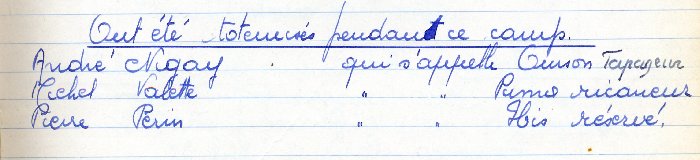 Ont été totemisés pendant ce camp.
André Nigay . qui s'appelle Ourson Tapageur
Michel Valette " " Puma ricaneur
Pierre Perin " " Ibis réservé.